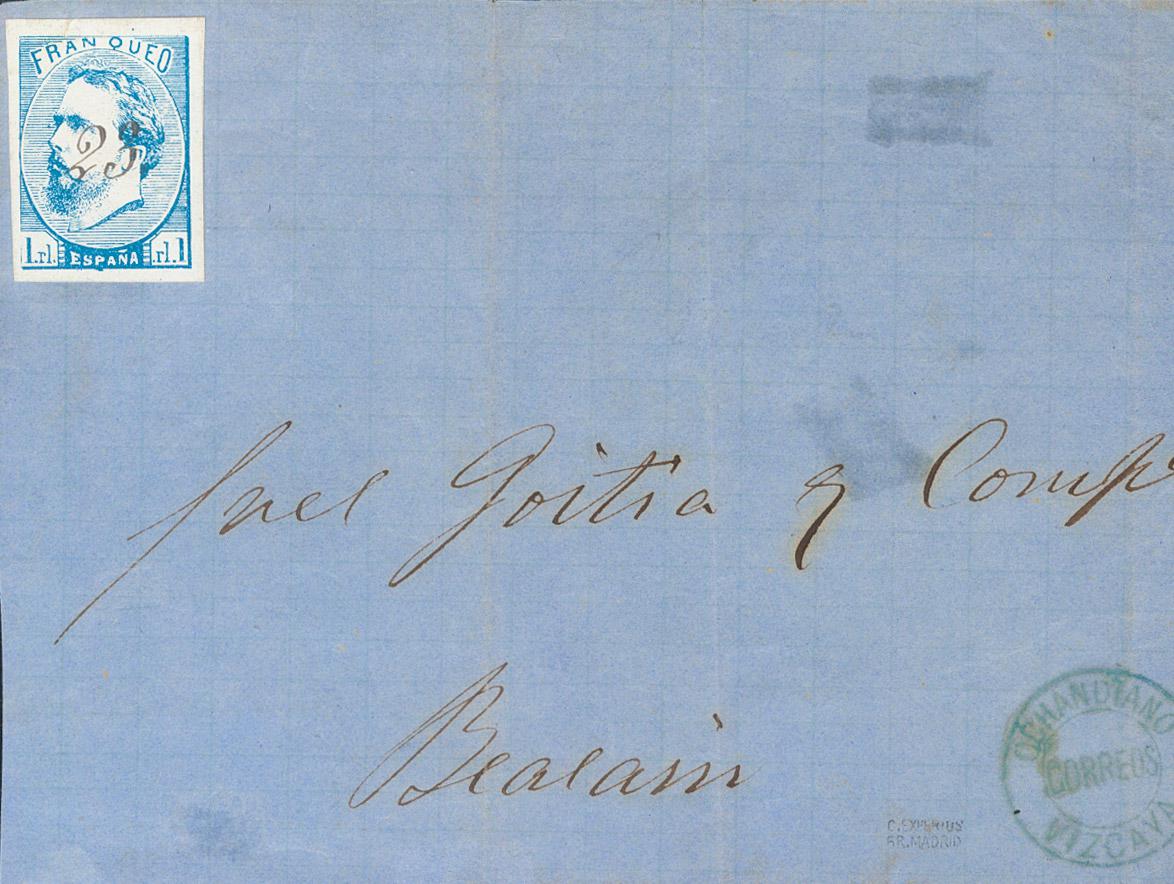 FRANQUEO
23
1.rl. ESPAÑA .rl.1
Goitia y Compª
Beasain
OCHANDIANO
CORREOS
VIZCAYA
C.EXPERTOS
GR.MADRID